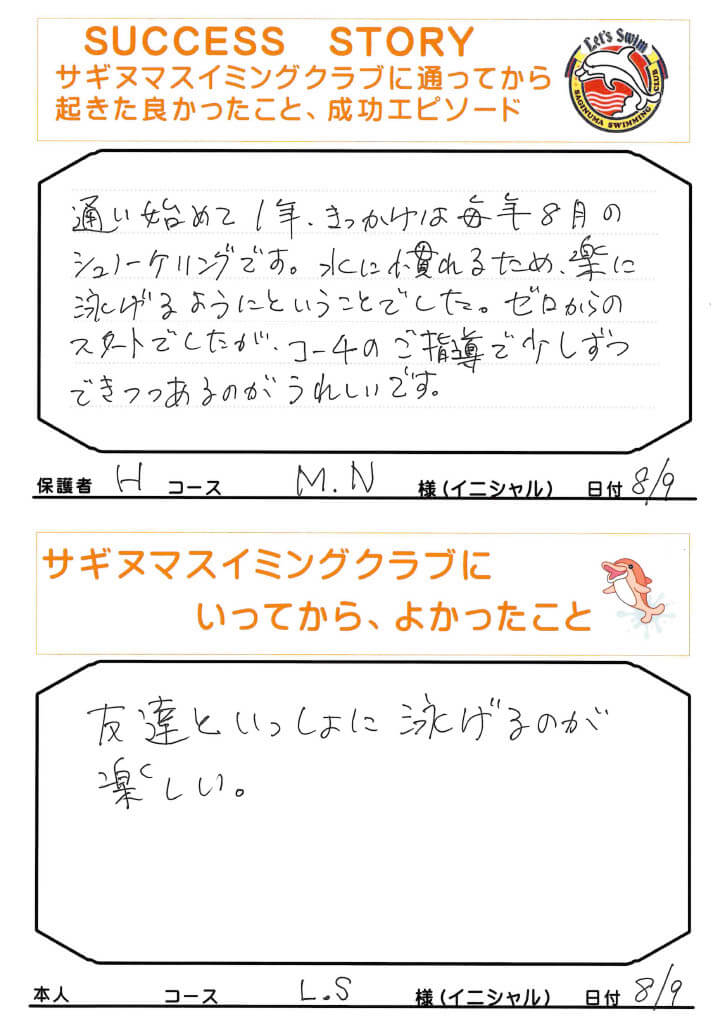 SUCCESS STORY
サギヌマスイミングクラブに通ってから
起きた良かったこと、成功エピソード
Let's Swim
SAGINUMA SWIMMING CLUB
通い始めて1年、きっかけは毎年8月の
シュノーケリングです。水に慣れるため、楽に
泳げるようにということでした。ゼロからの
スタートでしたが、コーチのご指導で少しずつ
できつつあるのがうれしいです。
保護者 H コース M.N 様(イニシャル) 日付 8/9
サギヌマスイミングクラブに
いってから、よかったこと
友達といっしょに泳げるのが
楽しい。
本人 コース L.S 様(イニシャル) 日付 8/9